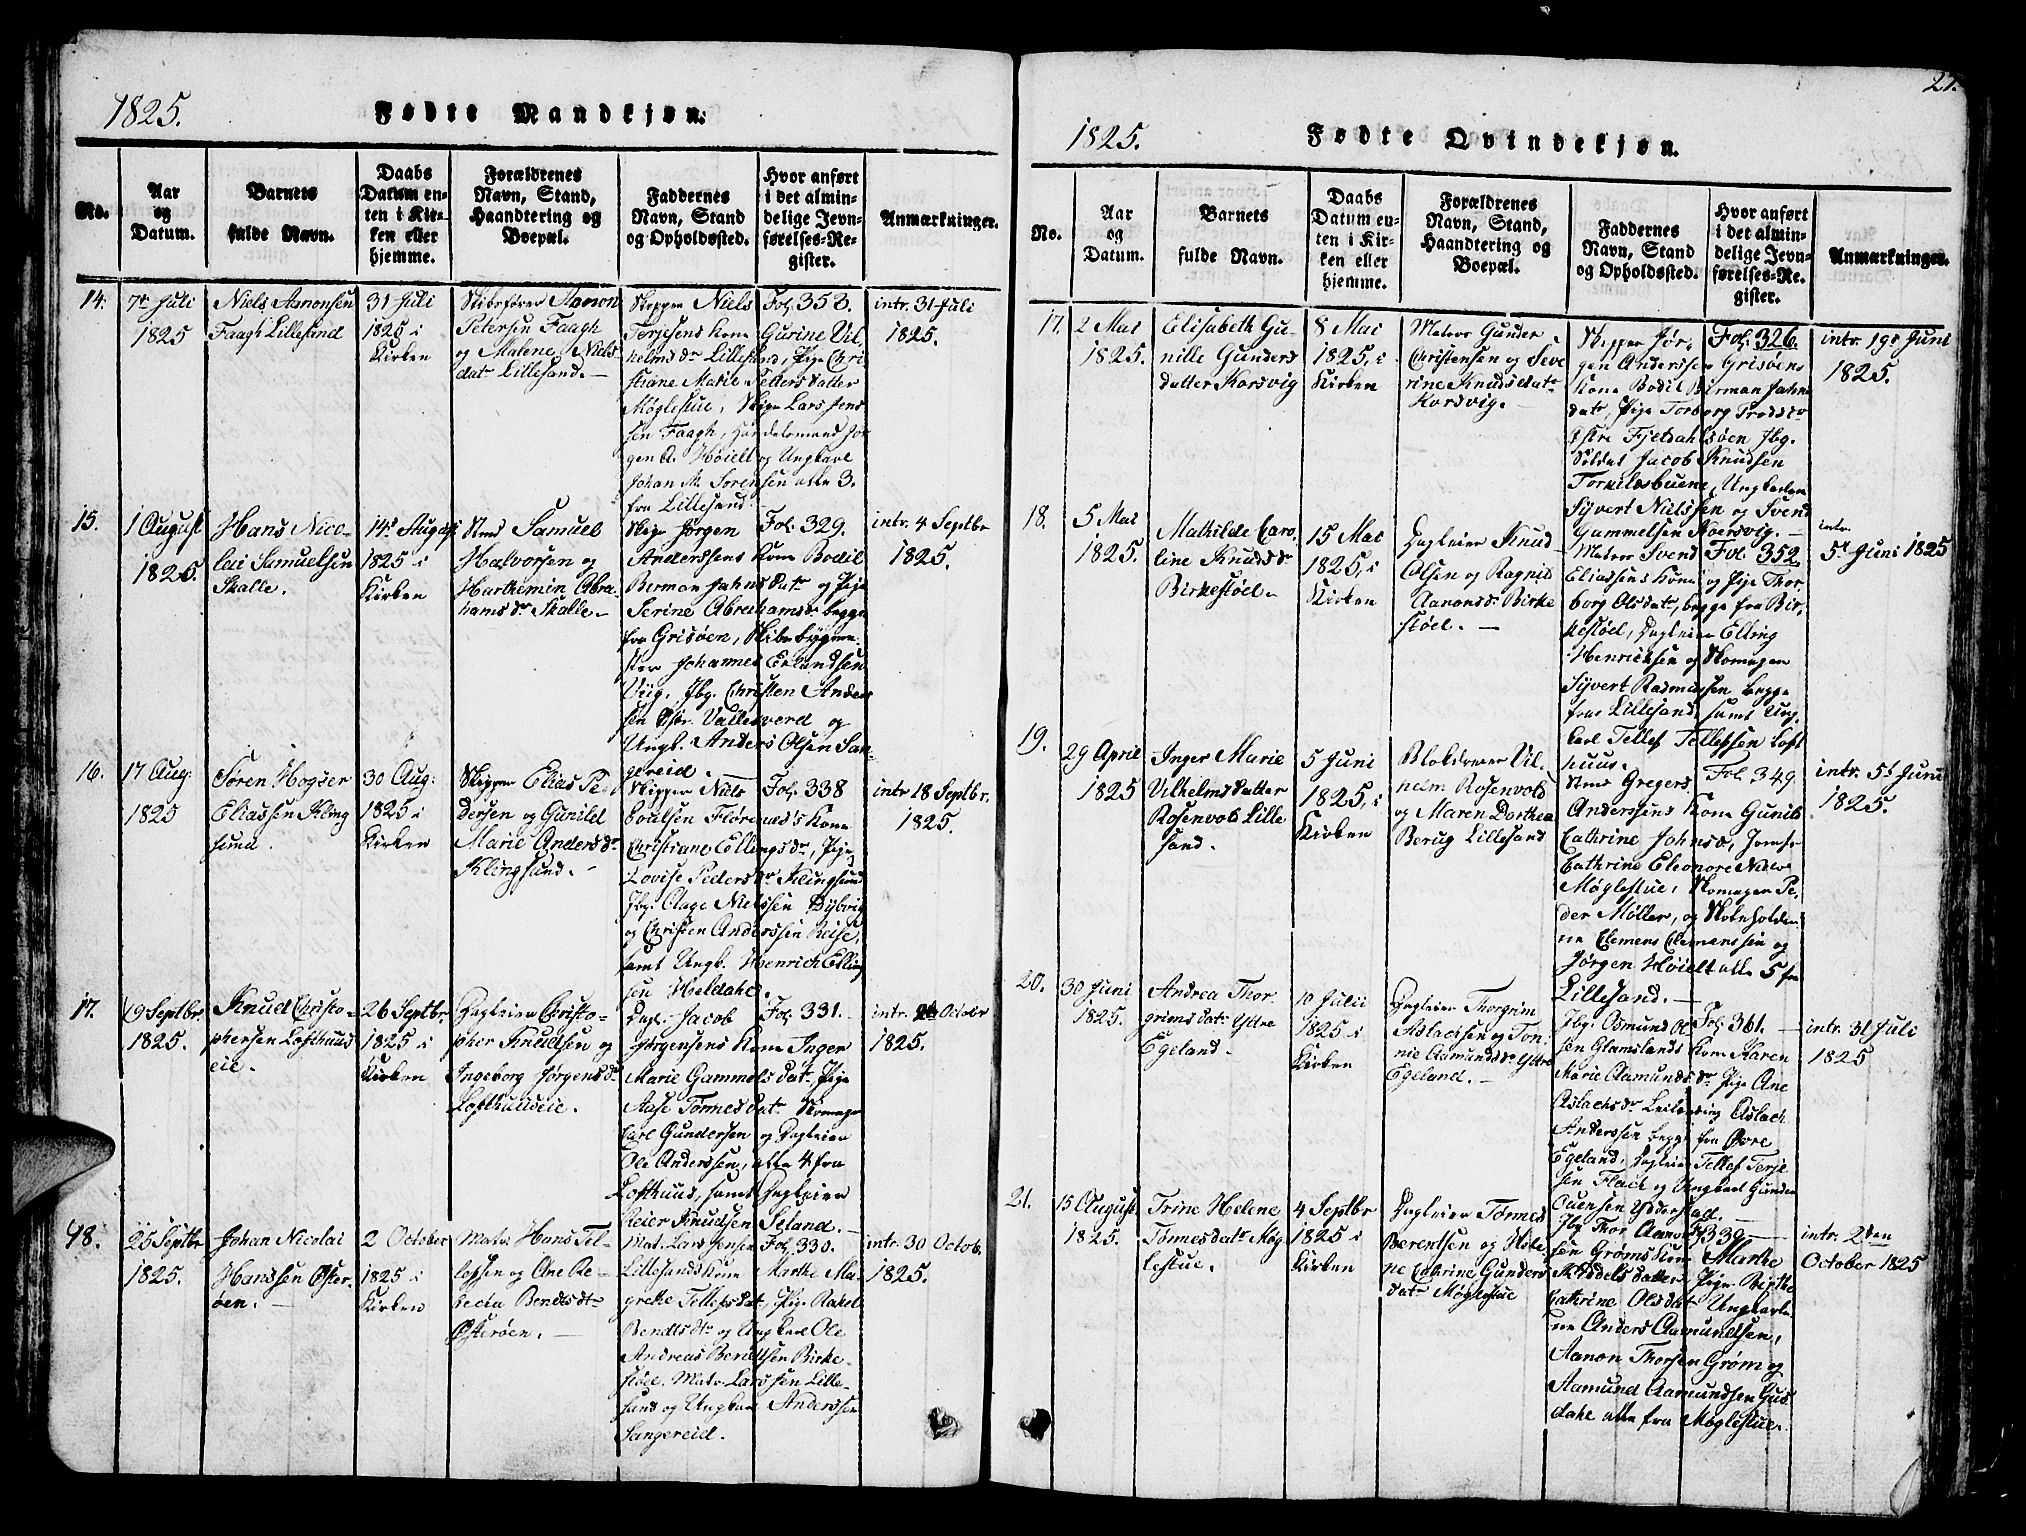 1825.
Fødte Mandkjøn.
No.
Aar
og
Datum.
Barnets
fulde Navn.
Daabs
Datum en-
ten i Kir-
ken eller
hjemme.
Forældrenes
Navn, Stand,
Haandtering og
Boepæl.
Faddernes
Navn, Stand
og Opholdssted.
Hvor anført
i det almin-
delige Jevn-
førelses-Re-
gister.
Anmærkninger.
14.
7de Juli
1825
Niels Aanonsen
Faagh Lillesand
31 Juli
1825 i
Kirken
Skibsfører Aanon
Petersen Faagh
og Malene Niels
datr Lillesand.
Skipper Niels
Terjesens kone Gurine Vil
helmsdr Lillesand, Pige Chri
stiane Marie Pettersdatter
Møglestue, Skipr Lars Jens
sen Faagh, Handelsmand Jør
gen A. Høiell og Ungkarl
Johan M. Sørensen alle 3.
fra Lillesand.
Fol. 358.
intr. 31 Juli
1825.
15.
1 August
1825.
Hans Nico-
lai Samuelsen
Skalle.
14de August
1825 i
Kirken
Samuel
Halvorsen og
Harthemin Abra
hamsdr Skalle.
Skipr Jørgen
Anderssens Kone Bodil
Birman Jahnsdatr og Pige
Serine Abrahamsdr begge
fra Grisøen, Skibsbygme
ster Johannes Erlandsen
Viig, Jbg. Christen Anders
sen Østr. Vallesverd og
Ungk. Anders Olsen San-
gereid.
Fol. 329.
intr. 4 Septbr
1825.
16.
17 Aug:
1825
Søren Hogser
Eliassen Kling
sund.
30 Aug:
1825 i
Kirken
Skipper Elias Pe
dersen og Gunild
Marie Andersdr
Klingsund.
Skipper Niels
Poulsen Flørenæs's Kone
Christiane Ellingsdr, Pige
Lovise Pedersdr Klingsund
Jbg. Aage Nielssen Bybvig
og Christen Anderssen Heise,
samt Ungk. Henrich Elling
sen Hældahl.
Fol. 338
intr 18 Septbr.
1825.
17.
19 Septbr.
1825.
Knud Christo-
phersen Lofthuus
eie.
26 Septbr.
1825 i
Kirken
Dagleier Christo-
pher Knudsen og
Ingeborg Jørgensdr
Lofthuuseie.
Dagl: Jacob
Jørgensens Kone Inger
Marie Gammelsdatr, Pige
Aase Tønnesdatr Skomager
Carl Gundersen og Dagleier
Ole Anderssen, alle 4 fra
Lofthuus, samt Dagleier
Reier Knudsen Seland.
Fol. 331.
intr. October
1825.
18.
25 Septbr
1825.
Johan Nicolai
Hanssen Øster-
øen.
2 October
1825 i
Kirken
Matr. Hans Tel-
lefsen og Ane Re-
becha Bendtsdtr
Østerøen.
Mat. Lars Jensen
Lillesands Kone Marthe Ma-
grethe Tellefsdatr, Pige Rahel
Bendtsdtr og Ungkarl Ole
Andreas Berntsen Birke-
støel. Matr. Lars Jensen Lille-
sand og Ungkarl Anderssen
Sangereid.
Fol. 330.
intr. 30 Octob.
1825.
27.
1825.
Fødte Qvindekjøn.
No.
Aar
og
Datum.
Barnets
fulde Navn.
Daabs
Datum en-
ten i Kir-
ken eller
hjemme.
Forældrenes
Navn, Stand,
Haandtering og
Boepæl.
Faddernes
Navn, Stand
og Opholdssted.
Hvor anført
i det almin-
delige Jevn-
førelses-Re-
gister.
Anmærkninger.
17.
2 Mai
1825.
Elisabeth Gu-
nille Gunders
datter Korsvig
8 Mai
1825, i
Kirken
Matros Gunder
Christensen og Seve
rine Knudsdatr
Korsvig.
Skipper Jør-
gen Anderssen Grisøens
Kone Bodil Birman Jahns
datr, Pige Torborg
Østre Fjeldahlsøen Jbg.
Soldat Jacob Knudsen
Torkildsbuene, Ungkarlen
Syvert Nielssen og Svend
Gammelsen Korsvig.
Fol. 326.
intr. 19de Juni
1825.
18.
5 Mai
1825.
Mathilde Caro
line Knudsdr
Birkestøel
15 Mai
1825, i
Kirken
Dagleier Knud
Olsen og Ragnild
Aanonsdr Birke
støel.
Matros Svend
Eliassens Kone og Pige Thor-
borg Olsdatr, begge fra Bir-
kestøel, Dagleier Elling
Henrichsen og Skomager
Syvert Rasmussen begge
fra Lillesand, samt Ung-
karl Tellef Tellefsen Loft
huus.
Fol. 352.
intr.
5te Juni 1825
19.
29 April
1825
Inger Marie
Vilhelmsdatter
Rosenvold Lille
sand.
5 Juni
1825, i
Kirken
Blokdreier Vil-
helm Rosenvold
og Maren Dorthea
Berug Lillesand
Gregers
Andersens Kone Gunild
Cathrine Johnsdr, Jomfr
Cathrine Eleonore Nielsdr
Møglestue, Skomager Pe-
der Møller, og Skoleholder
ne Clemens Clemenssen og
Jørgen Høielt alle 5 fra
Lillesand.
Fol. 349
intr. 5te Juni
1825.
20.
30 Juni
1825.
Andrea Thor
grimsdatr Ytre
Egeland.
10 Julii
1825 i
Kirken
Dagleier Thorgrim
Aslachsen og Ton-
nie Aamundsdr Ytre
Egeland.
Jbg. Osmund Ol-
sen Glamslands Kone Karen
Marie Aamundsdr Pige Ane
Aslachsdr Leilending Aslach
Anderssen begge fra Øvre
Egeland, Dagleier Tellef Terje
sen Flach og Ungkarl Gunder
Ouensen Ytderstad.
Fol. 361.
intr. 31 Juli
1825
21.
15 August
1825.
Trine Helene
Tønnesdatr Møg
lestue.
4 Septbr
1825 i
Kirken
Dagleier Tønnes
Berentsen og Hele
ne Cathrine Gunders
datr Møglestue
Jbg Thor Aanon-
sen Grøms Kone Marthe
Kiddelsdatter, Pige Birthe
Cathrine Olsdatr Ungkarle
ne Anders Aamundsen,
Aanon Thorsen Grøm og
Aamund Aamundsen Gus
dahl alle fra Møglestue.
339
intr. 2den
October 1825